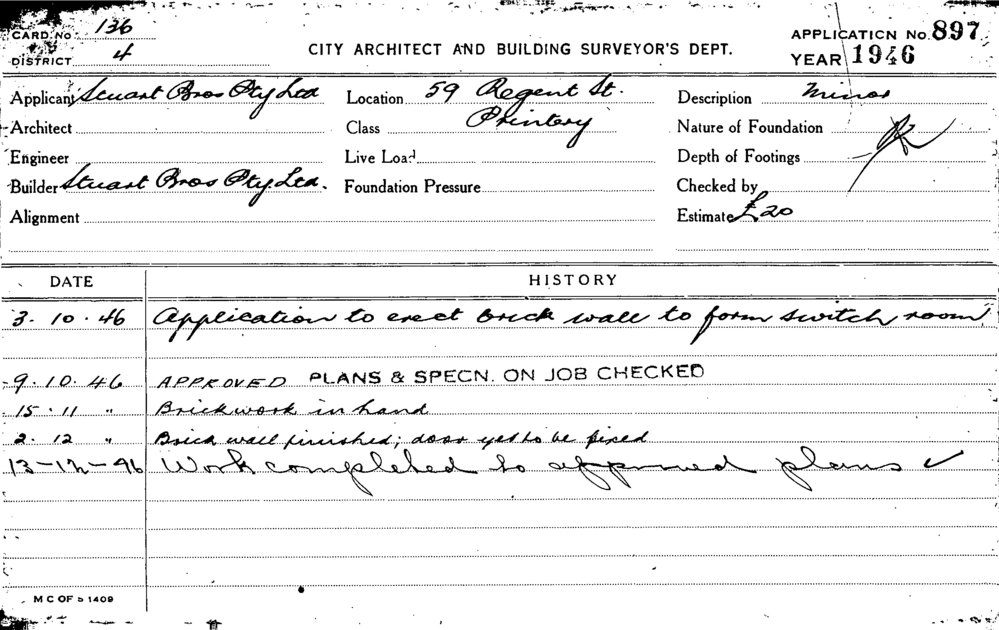 CARD. No. 136
DISTRICT 4
CITY ARCHITECT AND BUILDING SURVEYOR'S DEPT.
APPLICATION No. 897
YEAR 1946
Applicant Stuart Bros Pty Ltd
Location 59 Regent St.
Description Minor
Architect
Class Printery
Nature of Foundation
Engineer
Live Load
Depth of Footings
Builder Stuart Bros Pty Ltd.
Foundation Pressure
Checked by
Alignment
Estimate £20
DATE HISTORY
3.10.46 Application to erect brick wall to form switch room
9.10.46 APPROVED PLANS & SPECN. ON JOB CHECKED
15.11 " Brickwork in hand
2.12 " Brick wall finished; door yet to be fixed
13-12-46 Work completed to approved plans ✓
M C OF S 1409